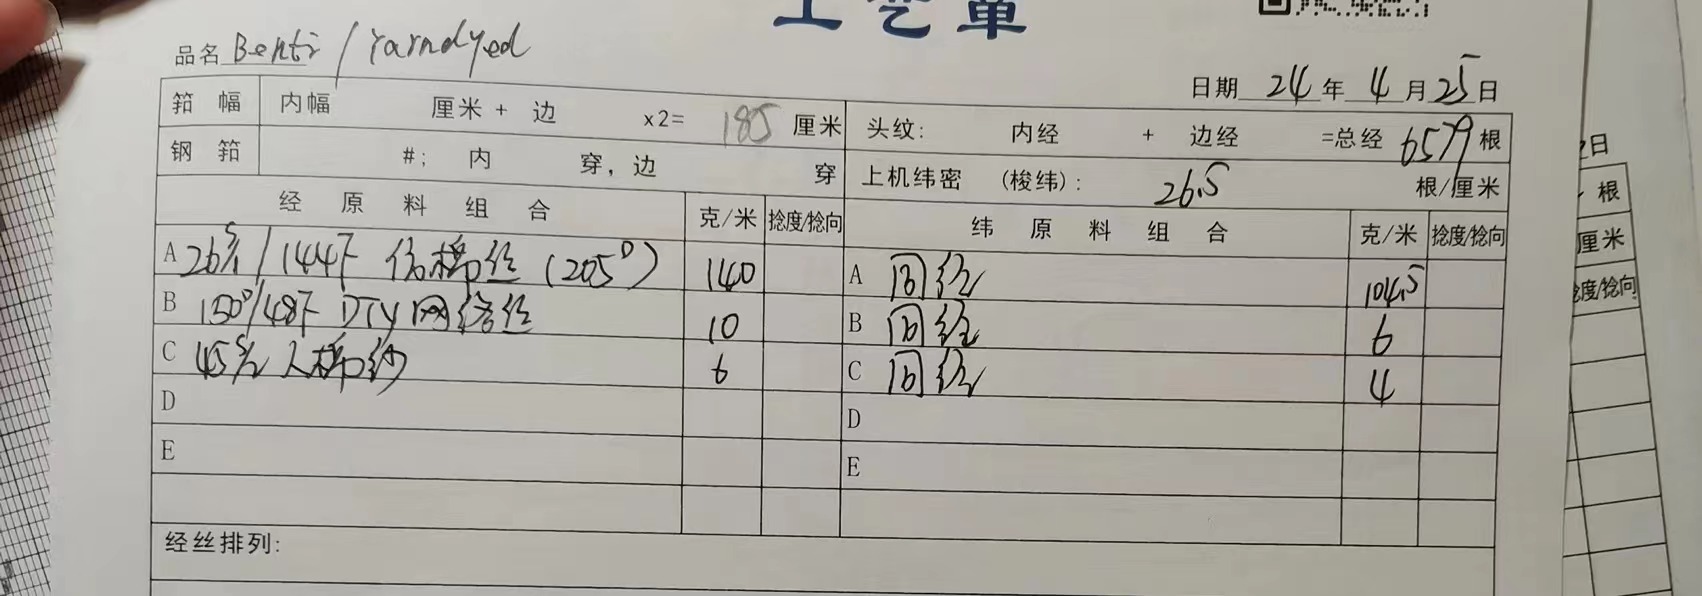 工艺单
品名 Benti / Yarndyed
日期 24 年 4 月 25 日
筘 幅 内幅 厘米 + 边 x2= 185 厘米 头纹: 内经 + 边经 =总经 6579 根
钢 筘 #; 内 穿, 边 穿 上机纬密 (梭纬): 26.5 根/厘米
经 原 料 组 合 克/米 捻度/捻向 纬 原 料 组 合 克/米 捻度/捻向
A 26S/1/144F 仿棉丝 (205D) 140 A 同经 104.5
B 150D/48F DTY 网络丝 10 B 同经 6
C 45S/2 人棉纱 6 C 同经 4
D D
E E
经丝排列:
日
根
厘米
捻度/捻向